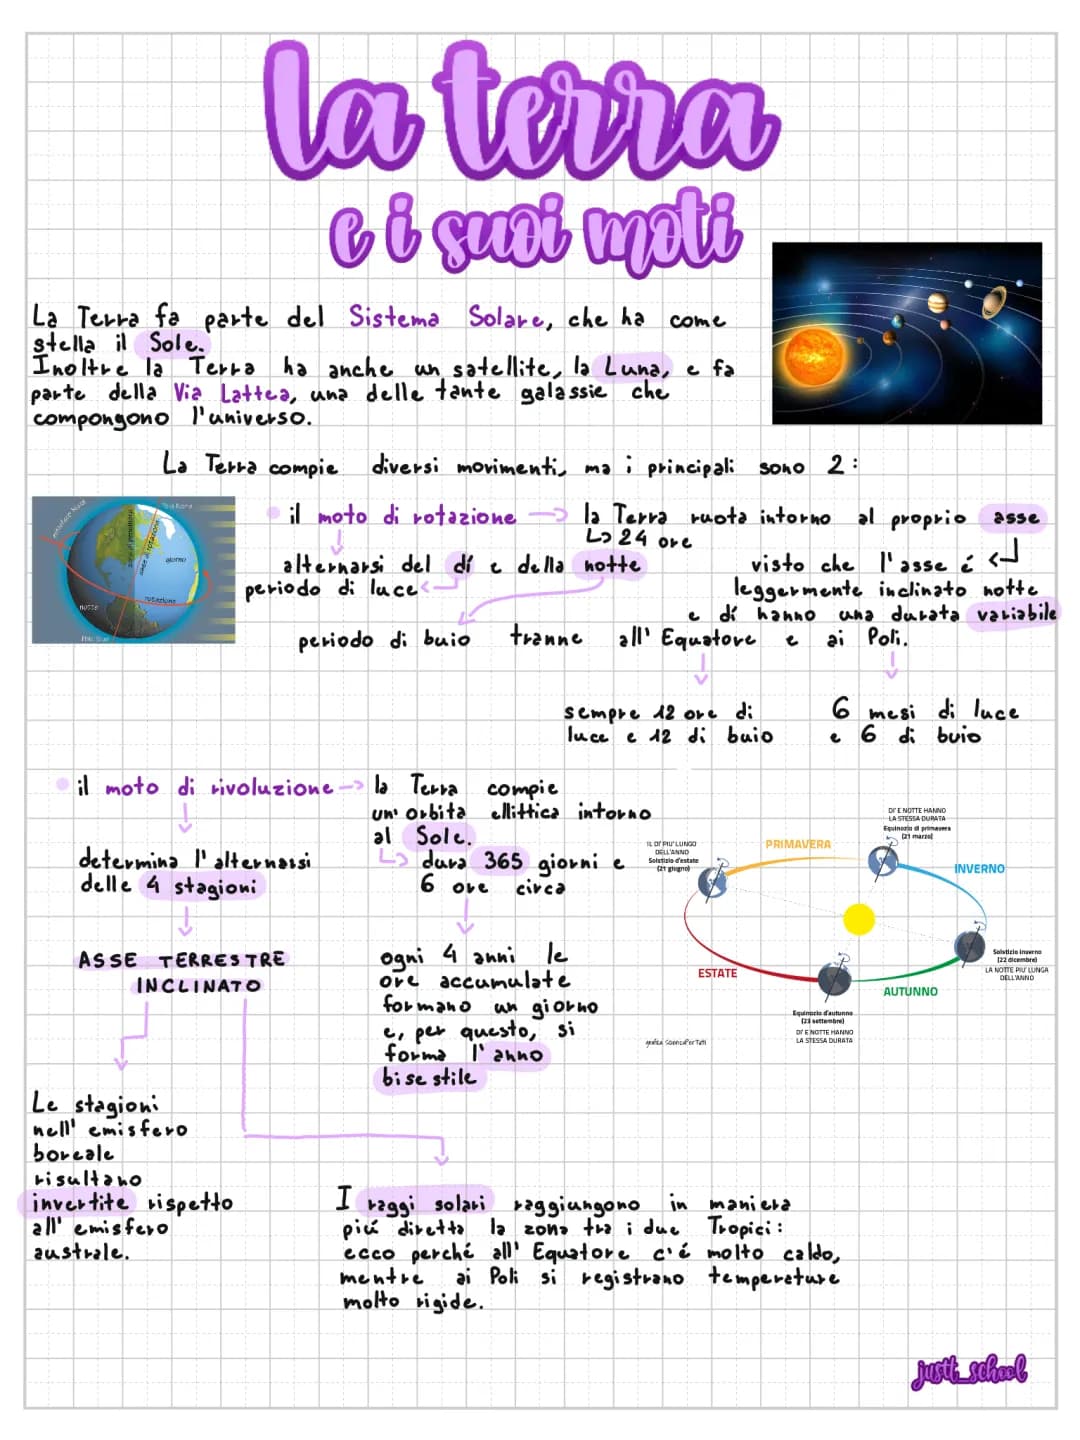 la terra
e i suoi moti
La Terra fa parte del Sistema Solare, che ha come
stella il Sole.
Inoltre la Terra ha anche un satellite, la Luna, e fa
parte della Via Lattea, una delle tante galassie che
compongono l'universo.
La Terra compie diversi movimenti, ma i principali sono 2:
il moto di rotazione → la Terra ruota intorno al proprio asse
↳ 24 ore
alternarsi del dí e della notte
periodo di luce
periodo di buio
visto che l'asse é
leggermente inclinato notte
e dí hanno una durata variabile
tranne all'Equatore e ai Poli.
sempre 12 ore di
luce e 12 di buio
6 mesi di luce
e 6 di buio
giorno
notte
rotazione
asse di rotazione
il moto di rivoluzione → la Terra compie
un'orbita ellittica intorno
al Sole.
↳ dura 365 giorni e
6 ore circa
determina l'alternarsi
delle 4 stagioni
ASSE TERRESTRE
INCLINATO
ogni 4 anni le
ore accumulate
formano un giorno
e, per questo, si
forma l'anno
bisestile
IL DI' PIU' LUNGO
DELL'ANNO
Solstizio d'estate
(21 giugno)
PRIMAVERA
DI' E NOTTE HANNO
LA STESSA DURATA
Equinozio di primavera
(21 marzo)
INVERNO
Solstizio inverno
(22 dicembre)
LA NOTTE PIU' LUNGA
DELL'ANNO
ESTATE
AUTUNNO
Equinozio d'autunno
(23 settembre)
DI' E NOTTE HANNO
LA STESSA DURATA
grafica ScienzaPerTutti
Le stagioni
nell'emisfero
boreale
risultano
invertite rispetto
all'emisfero
australe.
I raggi solari raggiungono in maniera
piú diretta la zona tra i due Tropici:
ecco perché all'Equatore c'é molto caldo,
mentre ai Poli si registrano temperature
molto rigide.
justt_school